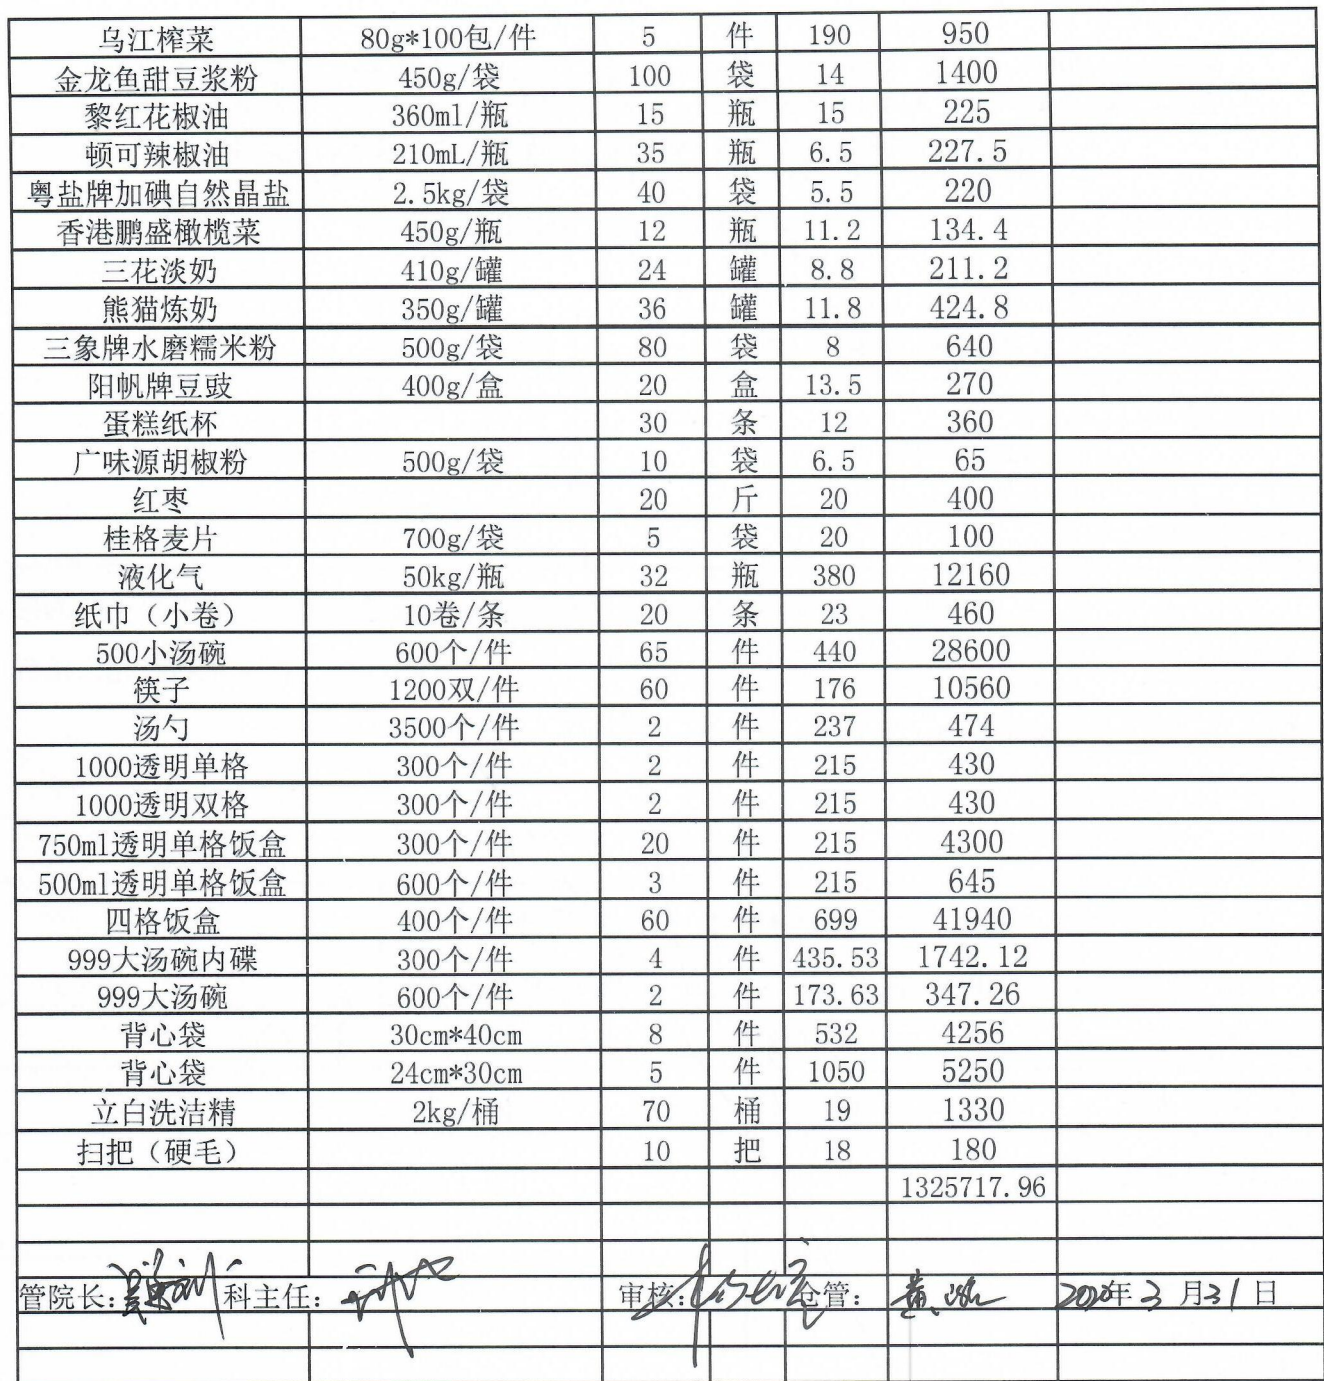 乌江榨菜 80g*100包/件 5 件 190 950
金龙鱼甜豆浆粉 450g/袋 100 袋 14 1400
黎红花椒油 360ml/瓶 15 瓶 15 225
顿可辣椒油 210mL/瓶 35 瓶 6.5 227.5
粤盐牌加碘自然晶盐 2.5kg/袋 40 袋 5.5 220
香港鹏盛橄榄菜 450g/瓶 12 瓶 11.2 134.4
三花淡奶 410g/罐 24 罐 8.8 211.2
熊猫炼奶 350g/罐 36 罐 11.8 424.8
三象牌水磨糯米粉 500g/袋 80 袋 8 640
阳帆牌豆豉 400g/盒 20 盒 13.5 270
蛋糕纸杯 30 条 12 360
广味源胡椒粉 500g/袋 10 袋 6.5 65
红枣 20 斤 20 400
桂格麦片 700g/袋 5 袋 20 100
液化气 50kg/瓶 32 瓶 380 12160
纸巾（小卷） 10卷/条 20 条 23 460
500小汤碗 600个/件 65 件 440 28600
筷子 1200双/件 60 件 176 10560
汤勺 3500个/件 2 件 237 474
1000透明单格 300个/件 2 件 215 430
1000透明双格 300个/件 2 件 215 430
750ml透明单格饭盒 300个/件 20 件 215 4300
500ml透明单格饭盒 600个/件 3 件 215 645
四格饭盒 400个/件 60 件 699 41940
999大汤碗内碟 300个/件 4 件 435.53 1742.12
999大汤碗 600个/件 2 件 173.63 347.26
背心袋 30cm*40cm 8 件 532 4256
背心袋 24cm*30cm 5 件 1050 5250
立白洗洁精 2kg/桶 70 桶 19 1330
扫把（硬毛） 10 把 18 180
1325717.96
管院长: 科主任: 审核: 仓管: 年3月31日